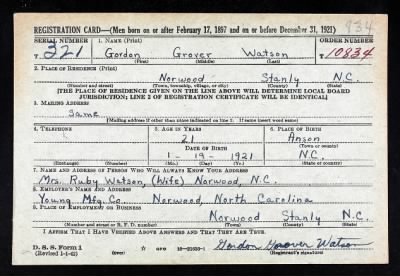 434
REGISTRATION CARD—(Men born on or after February 17, 1897 and on or before December 31, 1921)
SERIAL NUMBER 1. NAME (Print) ORDER NUMBER
T 321 Gordon Grover Watson T 10834
(First) (Middle) (Last)
2. PLACE OF RESIDENCE (Print)
Norwood Stanly N.C.
(Number and street) (Town, township, village, or city) (County) (State)
[THE PLACE OF RESIDENCE GIVEN ON THE LINE ABOVE WILL DETERMINE LOCAL BOARD
JURISDICTION; LINE 2 OF REGISTRATION CERTIFICATE WILL BE IDENTICAL]
3. MAILING ADDRESS
Same
[Mailing address if other than place indicated on line 2. If same insert word same]
4. TELEPHONE 5. AGE IN YEARS 6. PLACE OF BIRTH
21 Anson
DATE OF BIRTH (Town or county)
1 - 19 - 1921 N.C.
(Exchange) (Number) (Mo.) (Day) (Yr.) (State or country)
7. NAME AND ADDRESS OF PERSON WHO WILL ALWAYS KNOW YOUR ADDRESS
Mrs. Ruby Watson, (Wife) Norwood, N.C.
8. EMPLOYER'S NAME AND ADDRESS
Young Mfg. Co. Norwood, North Carolina
9. PLACE OF EMPLOYMENT OR BUSINESS
Norwood Stanly N.C.
(Number and street or R. F. D. number) (Town) (County) (State)
I AFFIRM THAT I HAVE VERIFIED ABOVE ANSWERS AND THAT THEY ARE TRUE.
D. S. S. Form 1
(Revised 1-1-42) (over) Gordon Grover Watson
(Registrant's signature)